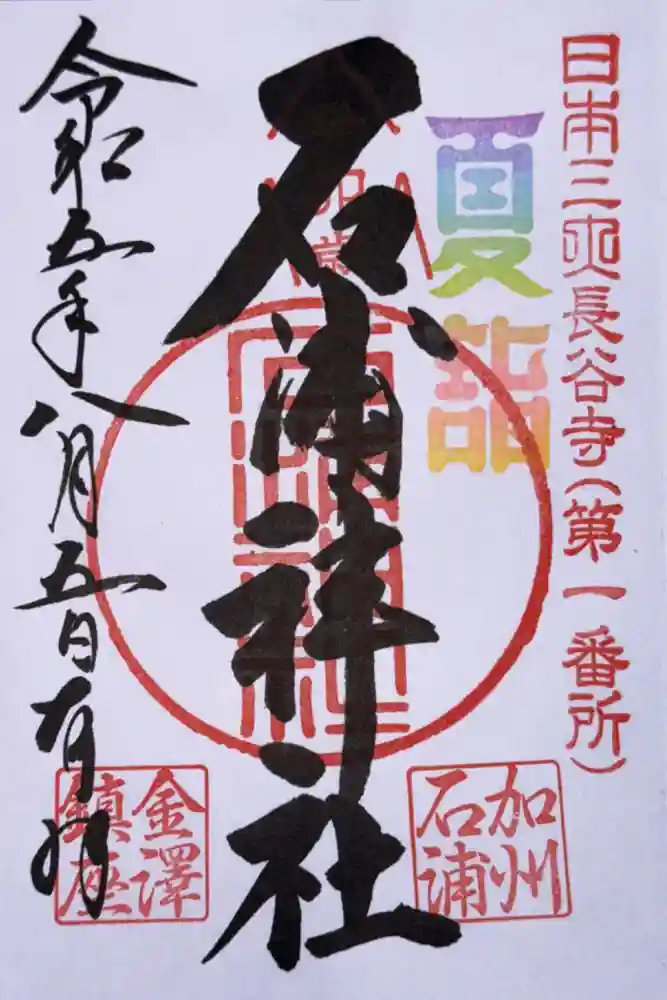 日本三所長谷寺(第一番所)
夏詣
石浦神社
令和五年八月五日有拝
加州
石浦
金澤
鎮座